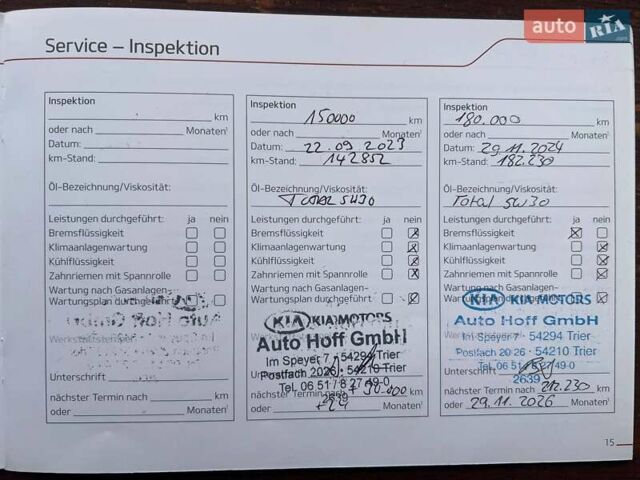 auto RIA .com
Service – Inspektion
Inspektion
km
oder nach Monaten¹
Datum:
km-Stand:
Öl-Bezeichnung/Viskosität:
Leistungen durchgeführt: ja nein
Bremsflüssigkeit
Klimaanlagenwartung
Kühlflüssigkeit
Zahnriemen mit Spannrolle
Wartung nach Gasanlagen-
Wartungsplan durchgeführt
Unterschrift
nächster Termin nach km
oder Monaten¹
Inspektion
150000 km
oder nach Monaten¹
Datum: 22.09.2023
km-Stand: 142852
Öl-Bezeichnung/Viskosität:
5W30
Leistungen durchgeführt: ja nein
Bremsflüssigkeit
Klimaanlagenwartung
Kühlflüssigkeit
Zahnriemen mit Spannrolle
Wartung nach Gasanlagen-
Wartungsplan durchgeführt
KIA KIA MOTORS
Auto Hoff GmbH
Im Speyer 7 · 54294 Trier
Postfach 2026 · 54210 Trier
Tel. 06 51 / 8 27 49-0
Unterschrift
2639
nächster Termin nach + 30.000 km
oder +24 Monaten¹
Inspektion
180.000 km
oder nach Monaten¹
Datum: 29.11.2024
km-Stand: 182.230
Öl-Bezeichnung/Viskosität:
Total 5W30
Leistungen durchgeführt: ja nein
Bremsflüssigkeit
Klimaanlagenwartung
Kühlflüssigkeit
Zahnriemen mit Spannrolle
Wartung nach Gasanlagen-
Wartungsplan durchgeführt
KIA KIA MOTORS
Auto Hoff GmbH
Im Speyer 7 · 54294 Trier
Postfach 20 26 · 54210 Trier
Tel. 06 51 / 8 27 49-0
Unterschrift
2639
nächster Termin nach 212.230 km
oder 29.11.2026 Monaten¹
15